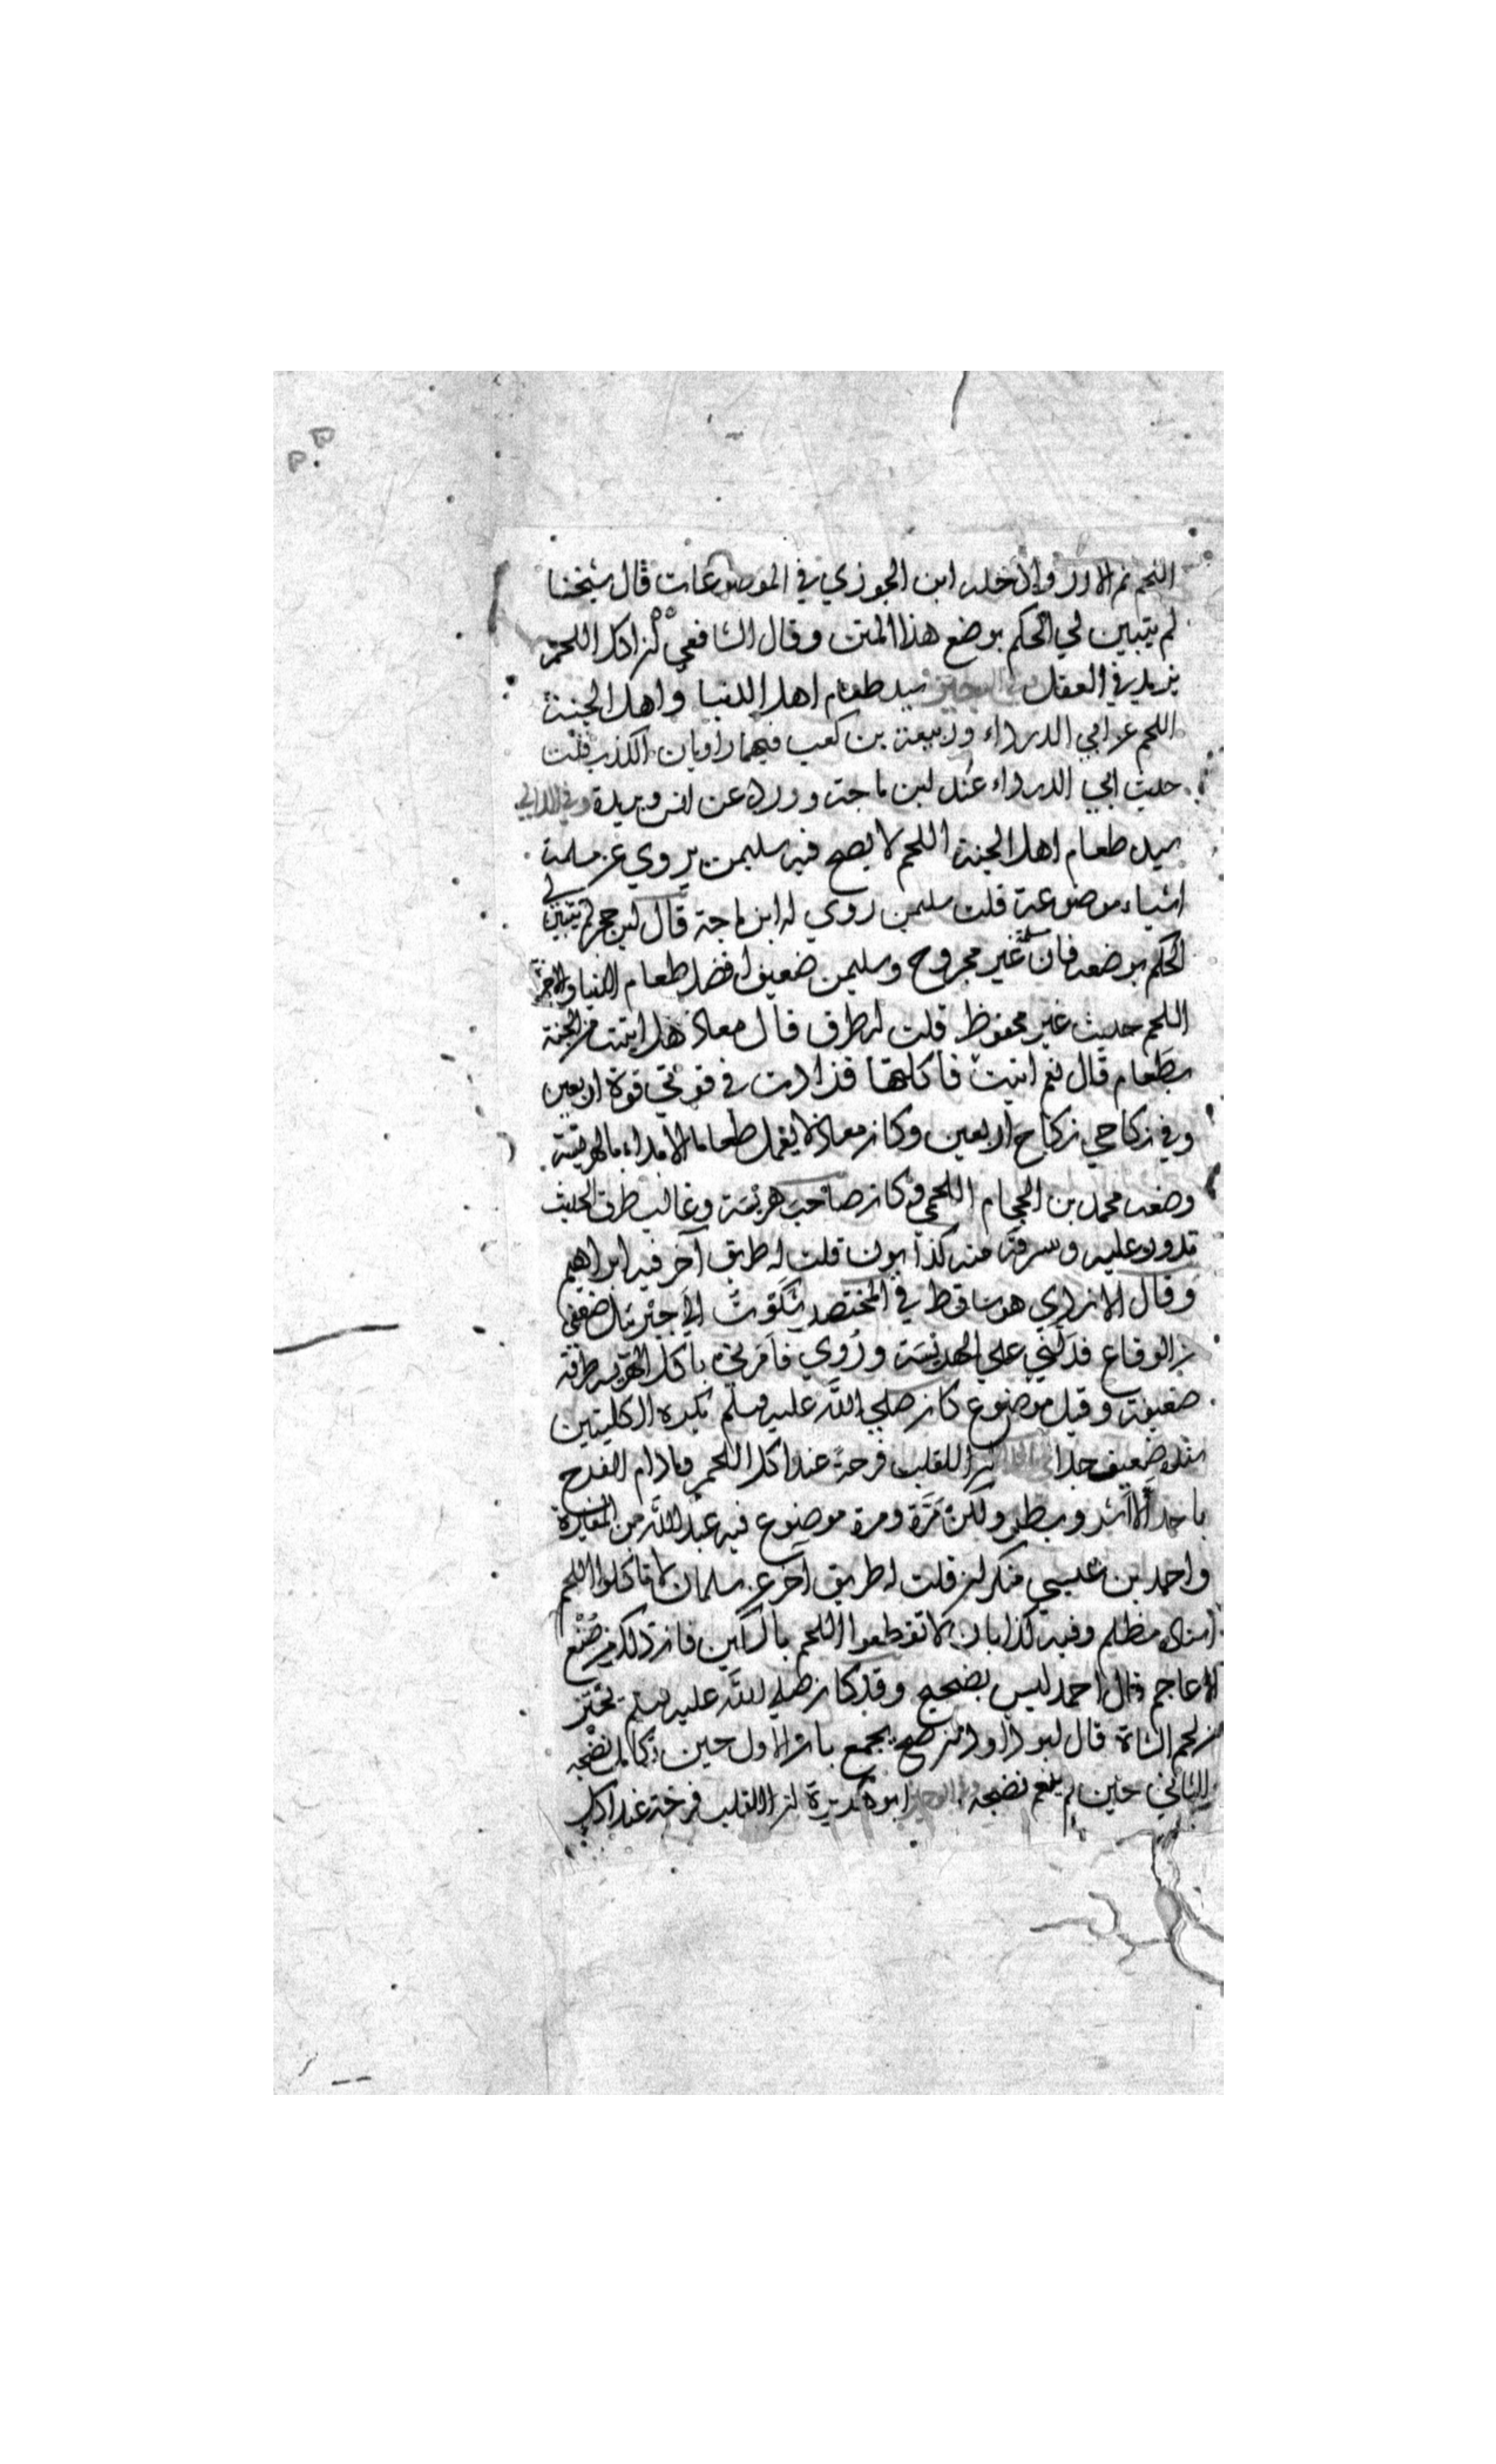 اللحم ثم الارز وادخله ابن الجوزي في الموضوعات قال شيخنا
لم يتبين لي الحكم بوضع هذا المتن وقال الشافعي ان اكل اللحم
يزيد في العقل وفي الوجيز سيد طعام اهل الدنيا واهل الجنة
اللحم عن ابي الدرداء وربيعة بن كعب فيهما راويان الكذب قلت
حديث ابي الدرداء عند ابن ماجة وورد عن انس وبريدة وفي اللآلي
سيد طعام اهل الجنة اللحم لا يصح فيه سليمن يروي عن مسلمة
اشياء موضوعة قلت سليمن روي له ابن ماجة قال ابن حجر لم يتبين لي
الحكم بوضعه فان مسلمة غير مجروح وسليمن ضعيف افضل طعام الدنيا والاخرة
اللحم حديث غير محفوظ قلت له طرق قال معاذ هل اتيت من الجنة
بطعام قال نعم اتيت فاكلتها فزادت في قوتي قوة اربعين
وفي نكاحي نكاح اربعين وكان معاذ لا يعمل طعاما الا بدا بالهريسة
وضعه محمد بن الحجام اللخمي وكان صاحب هريسة وغالب طرق الحديث
تدور عليه وسرقه منه كذابون قلت له طريق آخر فيه ابراهيم
وقال الازدي هو ساقط في المختصر شكوت الي جبريل ضعفي
من الوقاع فدلني علي الهريسة وروي فامرني باكل الهريسة طرقه
ضعيفة وقيل موضوع كان صلي الله عليه وسلم يكره الكليتين
سنده ضعيف جدا ان للقلب فرحة عند اكل اللحم وما دام الفرح
باحد الا اشر وبطر ولكن مرة ومرة موضوع فيه عبد الله بن المغيرة
واحمد بن عيسي منكران قلت له طريق آخر عن سلمان لا تاكلوا اللحم
اسناده مظلم وفيه كذابان لا تقطعوا اللحم بالسكين فان ذلك من صنع
الاعاجم قال احمد ليس بصحيح وقد كان صلي الله عليه وسلم يحتز
من لحم الشاة قال ابو داود ان صح يجمع بان الاول حين تكامل نضجه
والثاني حين لم يتم نضجه وفي الوجيز ابو هريرة ان للقلب فرحة عند اكل